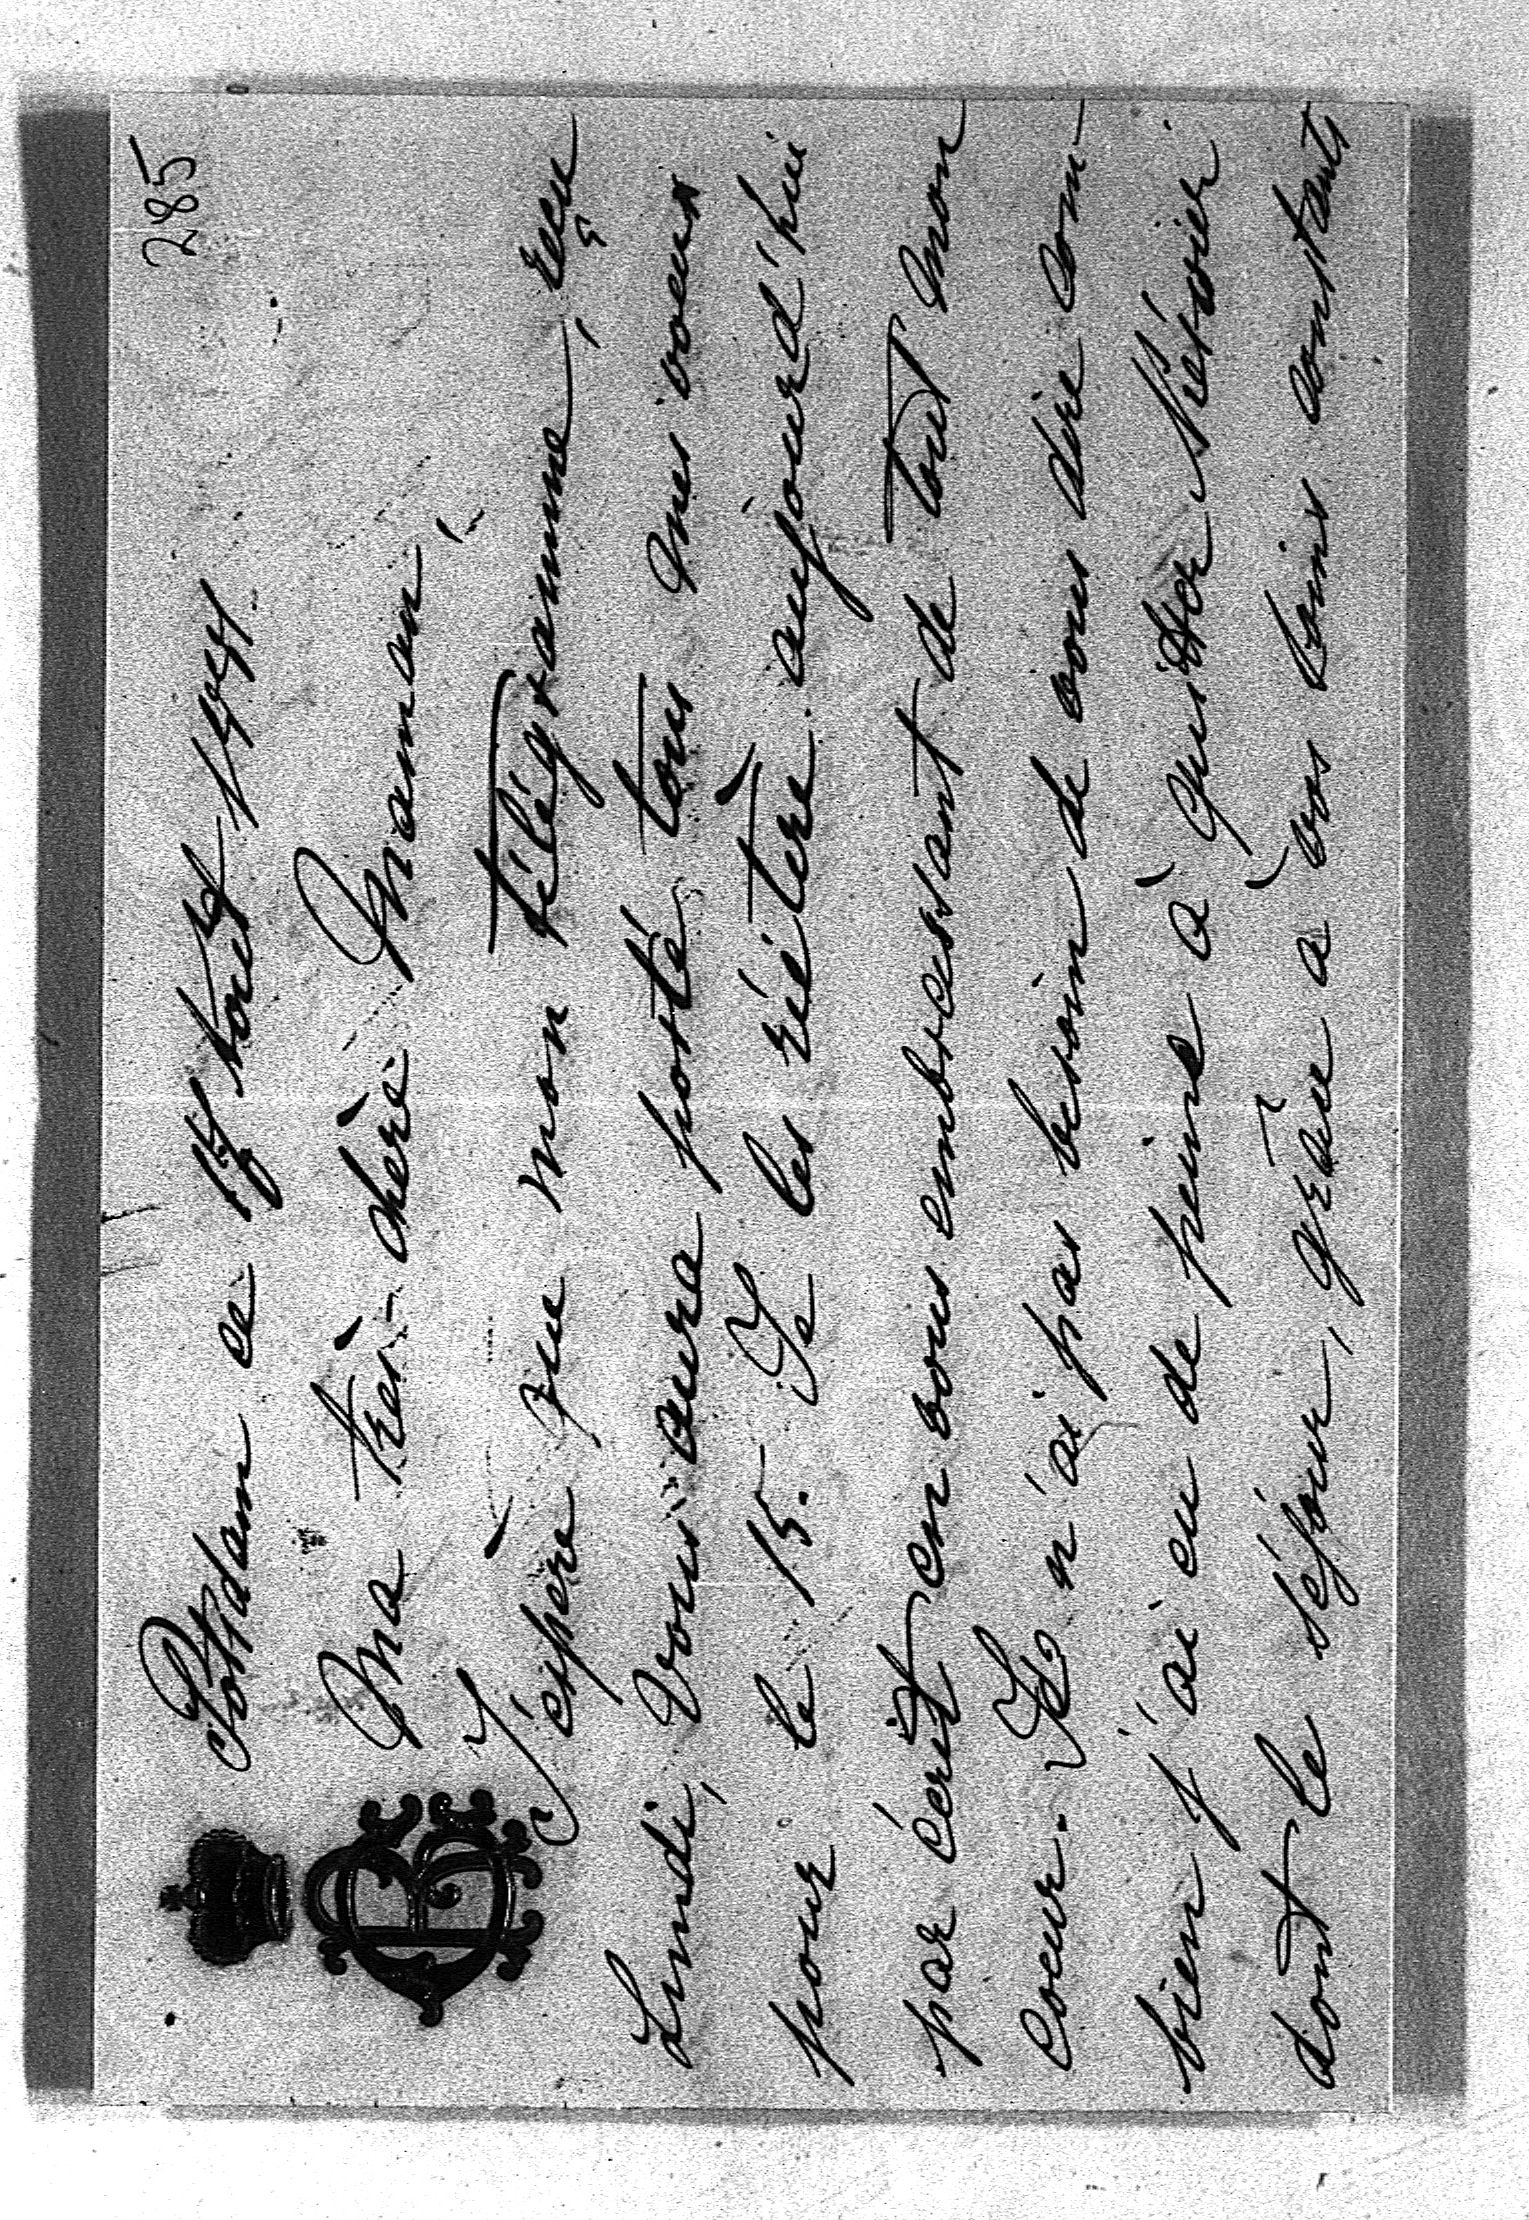 285
Potsdam ce 17 Août
Ma très-chère Maman,
J'espère que mon télégramme, reçu
Lundi, vous aura porté tous mes voeux
pour le 15. Je les réitère aujourd'hui
par écrit en vous embrassant de tout mon
coeur. Je n'ai pas besoin de vous dire com-
bien j'ai eu de peine à quitter
dont le séjour, grâce à vos soins constants